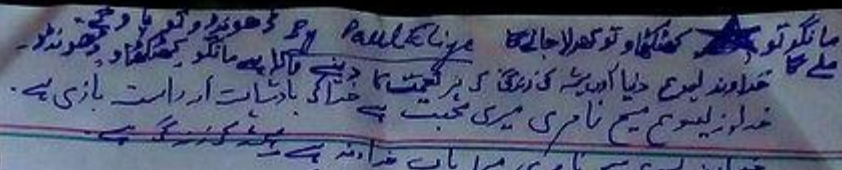 مانگو تو کھٹکھٹاو تو کھولا جائے گا Paul Eliya ڈھونڈو تو پاو گے
ملے گا دینے والا ہے مانگو کھٹکھٹاو ڈھونڈو۔
خداوند یسوع دنیا اور ہمیشہ کی زندگی کی ہر نعمت کا
خداوند یسوع مسیح ناصری میری محبت ہے خدا کی بادشاہت اور راست بازی ہے۔
ہمیشہ کی زندگی ہے
خداوند یسوع مسیح ناصری میرا باپ خداوند ہے